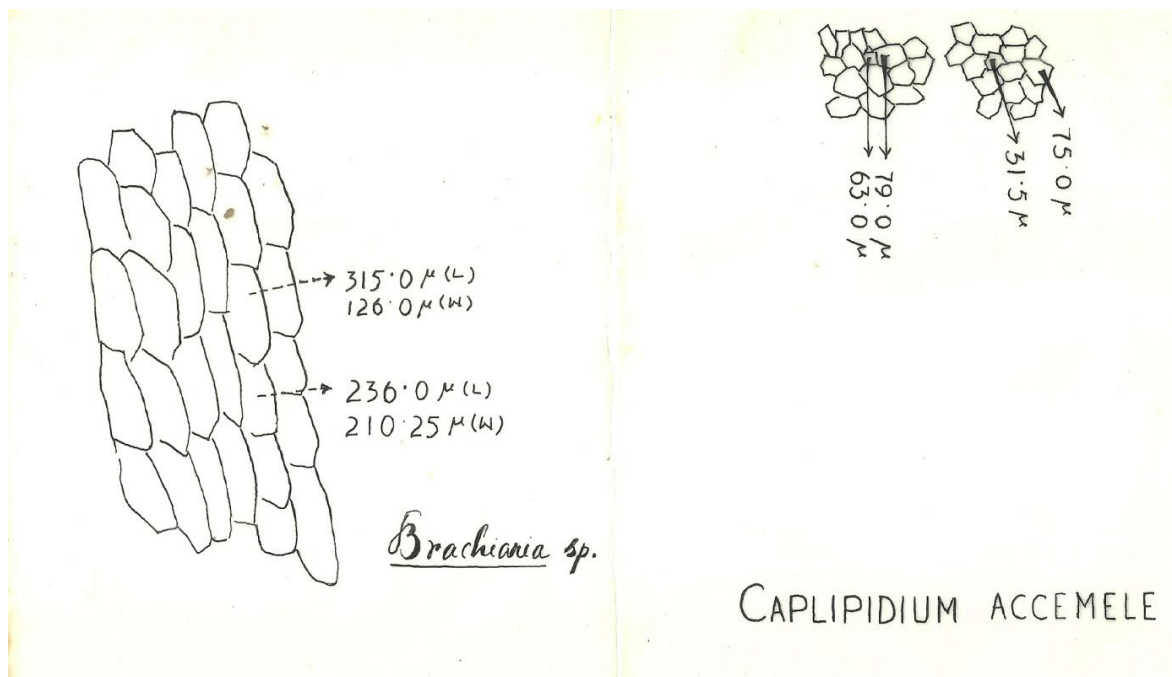 315.0 µ (L)
126.0 µ (W)
236.0 µ (L)
210.25 µ (W)
Brachiaria sp.
79.0 µ
63.0 µ
31.5 µ
75.0 µ
CAPLIPIDIUM ACCEMELE